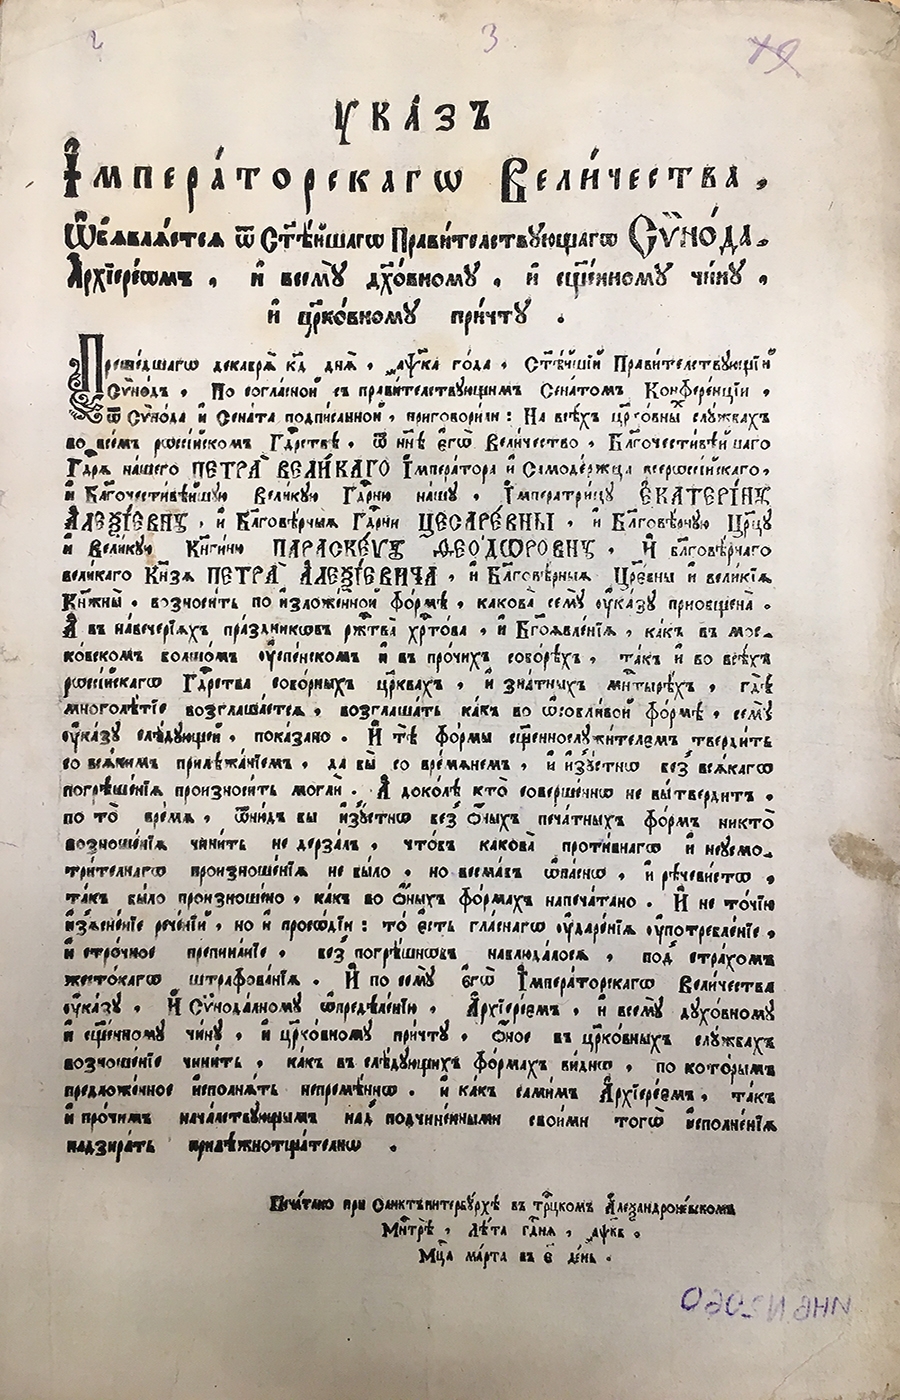 3
Ꙋка́зъ
І҆мпера́торскагѡ Вели́чества ,
Ѿѡб̾ѧвлѧ́етсѧ ѿ Ст҃ѣ́йшагѡ Прави́телствꙋющагѡ Сѷно́да .
А҆рхїере́ѡмъ , и҆ всемꙋ̀ дх҃о́вномꙋ , и҆ сщ҃е́нномꙋ чи́нꙋ ,
и҆ цр҃ко́вномꙋ при́чтꙋ .
Преше́дшагѡ декабрѧ̀ к҃д днѧ̀ , ҂аѱк҃а го́да , Ст҃ѣ́йшїй Прави́телствꙋющїй
Сѷно́дъ , По согла́сной съ прави́телствꙋющимъ Сена́томъ Конфере́нцїи ,
ѿ Сѷно́да и҆ Сена́та подпи́санной , приговори́ли : На всѣ́хъ цр҃ко́вны́ слꙋ́жбахъ
во все́мъ рѡссі́йскомъ Гдⷭ҇рствѣ , ѿ нн҃ѣ є҆гѡ̀ Вели́чество , Бл҃гочести́вѣйшаго
Гдⷭ҇рѧ на́шего ПЕТРА̀ ВЕЛИ́КАГО І҆мпера́тора и҆ Самоде́ржца всерѡссі́йскаго ,
и҆ Бл҃гочести́вѣйшꙋю Вели́кꙋю Гдⷭ҇рню на́шꙋ , І҆мператри́цꙋ Е҆КАТЕРІ́НꙊ
А҆ЛЕѮІ́ЕВНꙊ , и҆ Бл҃говѣ́рныѧ Гдⷭ҇рни ЦЕСАРЕ́ВНЫ , и҆ Бл҃говѣ́рнꙋю Цр҃цꙋ
и҆ Вели́кꙋю Кнг҃и́ню ПАРАСКЕ́ѴꙊ ѲЕО́ДѠРОВНꙊ , И҆ бл҃говѣ́рнаго
вели́каго Кнѧ́зѧ ПЕТРА̀ А҆ЛЕѮІ́ЕВИЧА , и҆ Бл҃говѣ́рныѧ Цр҃е́вны и҆ вели́кїѧ
Кнѧжны̀ . возноси́ть по и҆зложе́нной фо́рмѣ , какова̀ семꙋ̀ ᲂу҆ка́зꙋ приобщена̀ .
А҆ въ наве́черїѧхъ пра́здникѡвъ рж҃тва̀ хр҃то́ва , и҆ Бг҃оѧвле́нїѧ , ка́къ въ мос-
ко́вскомъ болшо́мъ ᲂу҆спе́нскомъ и҆ въ про́чихъ собо́рѣхъ , та́къ и҆ во всѣ́хъ
рѡссі́йскагѡ Гдⷭ҇рства собо́рныхъ цр҃квахъ , и҆ зна́тныхъ мн҃ты́рѣхъ , гдѣ̀
многолѣ́тїе возглаша́етсѧ , возглаша́ть ка́къ во ѡ҆собли́вой фо́рмѣ , семꙋ̀
ᲂу҆ка́зꙋ слѣ́дꙋющей , пока́зано . И҆ тѣ̀ фо́рмы сщ҃енносл꙽жи́телемъ тверди́ть
со всѧ́кимъ прилѣжа́нїемъ , да бы̀ со вре́мѧнемъ , и҆ и҆зꙋ́стнѡ без̾ всѧ́кагѡ
погрѣше́нїѧ произноси́ть моглѝ . А҆ доко́лѣ кто̀ соверше́ннѡ не вы́твердитъ ,
по то̀ вре́мѧ , ѿню́дъ бы и҆зꙋ́стнѡ без̾ ѻ҆́ныхъ печа́тныхъ фо́рмъ никто̀
возноше́нїѧ чини́ть не дерза́лъ , что́бъ какова̀ проти́внагѡ и҆ неꙋсмо-
три́телнагѡ произноше́нїѧ не бы́ло , но всема́бъ ѡ҆па́снѡ , и҆ рѣ́чевистѡ ,
та́къ бы́ло произноше́но , ка́къ во ѻ҆́ныхъ фо́рмахъ напеча́тано . И҆ не то́чїю
и҆зѧсне́нїе рече́нїй , но и҆ просѡді́и : то̀ є҆́сть гла́снагѡ ᲂу҆даре́нїѧ ᲂу҆потребле́нїе ,
и҆ стро́чное препина́нїе , без̾ погрѣ́шнѡвъ наблюда́лосѧ , под̾ стра́хомъ
жесто́кагѡ штрафова́нїѧ . И҆ по семꙋ̀ є҆гѡ̀ І҆мпера́торскагѡ Вели́чества
ᲂу҆ка́зꙋ , И҆ Сѷнода́лномꙋ ѡ҆предѣле́нїю , А҆рхїере́ѡмъ , и҆ всемꙋ̀ дꙋхо́вномꙋ
и҆ сщ҃е́нномꙋ чи́нꙋ , и҆ цр҃ко́вномꙋ при́чтꙋ , ѻ҆́ное въ цр҃ко́вныхъ слꙋ́жбахъ
возноше́нїе чини́ть , ка́къ въ слѣ́дꙋющихъ фо́рмахъ ви́днѡ , по кото́рымъ
предложе́нное и҆сполнѧ́ть непреме́ннѡ . и҆ ка́къ сами́мъ А҆рхїере́ѡмъ , та́къ
и҆ про́чимъ нача́лствꙋющымъ над̾ подчине́нными свои́ми тогѡ̀ и҆сполне́нїѧ
надзира́ть прилѣ́жнотща́телнѡ .
Печа́тано при Санктъпитербꙋ́рхѣ въ трⷪ҇цкомъ А҆леѯандроне́вскомъ
Мнⷭ҇трѣ̀ , Лѣ́та гдⷭ҇нѧ , ҂аѱк҃в .
Мцⷭ҇а ма́рта въ є҃ де́нь .